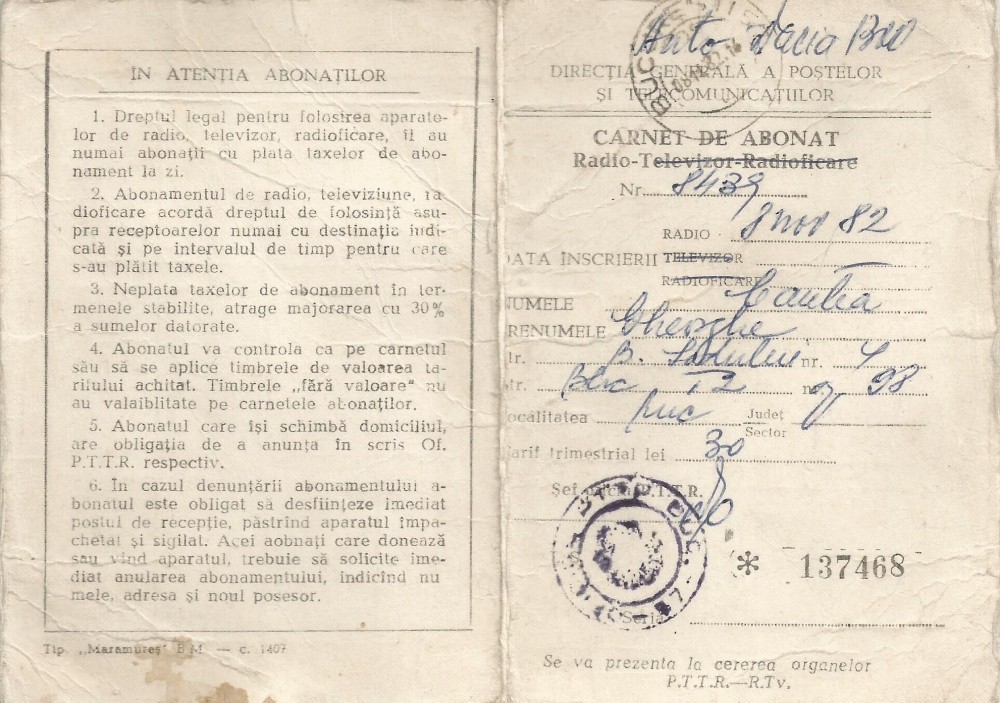 IN ATENȚIA ABONAȚILOR
1. Dreptul legal pentru folosirea aparate-
lor de radio, televizor, radioficare, îl au
numai abonații cu plata taxelor de abo-
nament la zi.
2. Abonamentul de radio, televiziune, ra
dioficare acordă dreptul de folosință asu-
pra receptoarelor numai cu destinația indi-
cată și pe intervalul de timp pentru care
s-au plătit taxele.
3. Neplata taxelor de abonament în ter-
menele stabilite, atrage majorarea cu 30%
a sumelor datorate.
4. Abonatul va controla ca pe carnetul
său să se aplice timbrele de valoarea ta-
rifului achitat. Timbrele „fără valoare" nu
au valaiblitate pe carnetele abonaților.
5. Abonatul care își schimbă domiciliul,
are obligația de a anunța în scris Of.
P.T.T.R. respectiv.
6. În cazul denunțării abonamentului a-
bonatul este obligat să desființeze imediat
postul de recepție, păstrînd aparatul împa-
chetat și sigilat. Acei aobnați care donează
sau vînd aparatul, trebuie să solicite ime-
diat anularea abonamentului, indicînd nu
mele, adresa și noul posesor.
Tip. „Maramureș" B.M. — c. 1407
Auto Dacia
DIRECȚIA GENERALĂ A POȘTELOR
ȘI TELECOMUNICAȚIILOR
CARNET DE ABONAT
Radio-Televizor-Radioficare
Nr. 8439
RADIO 8 nov 82
DATA ÎNSCRIERII TELEVIZOR
RADIOFICARE
NUMELE
RENUMELE Gheorghe
tr. B. nr. 4
tr. Bloc T2 98
ocalitatea Buc Județ
Sector
arif trimestrial lei 30
Șef oficiu P.T.T.R.
* 137468
Seria
Se va prezenta la cererea organelor
P.T.T.R.—R.Tv.